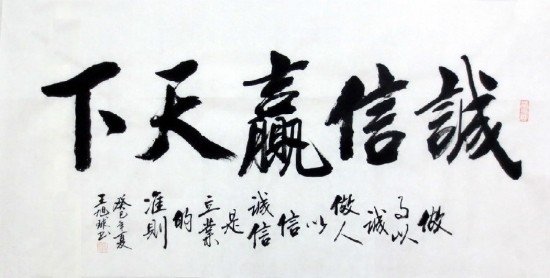 誠信贏天下
做
事以
誠
做人
以
信
誠信
是
立業
的
准則
癸巳年夏
王旭